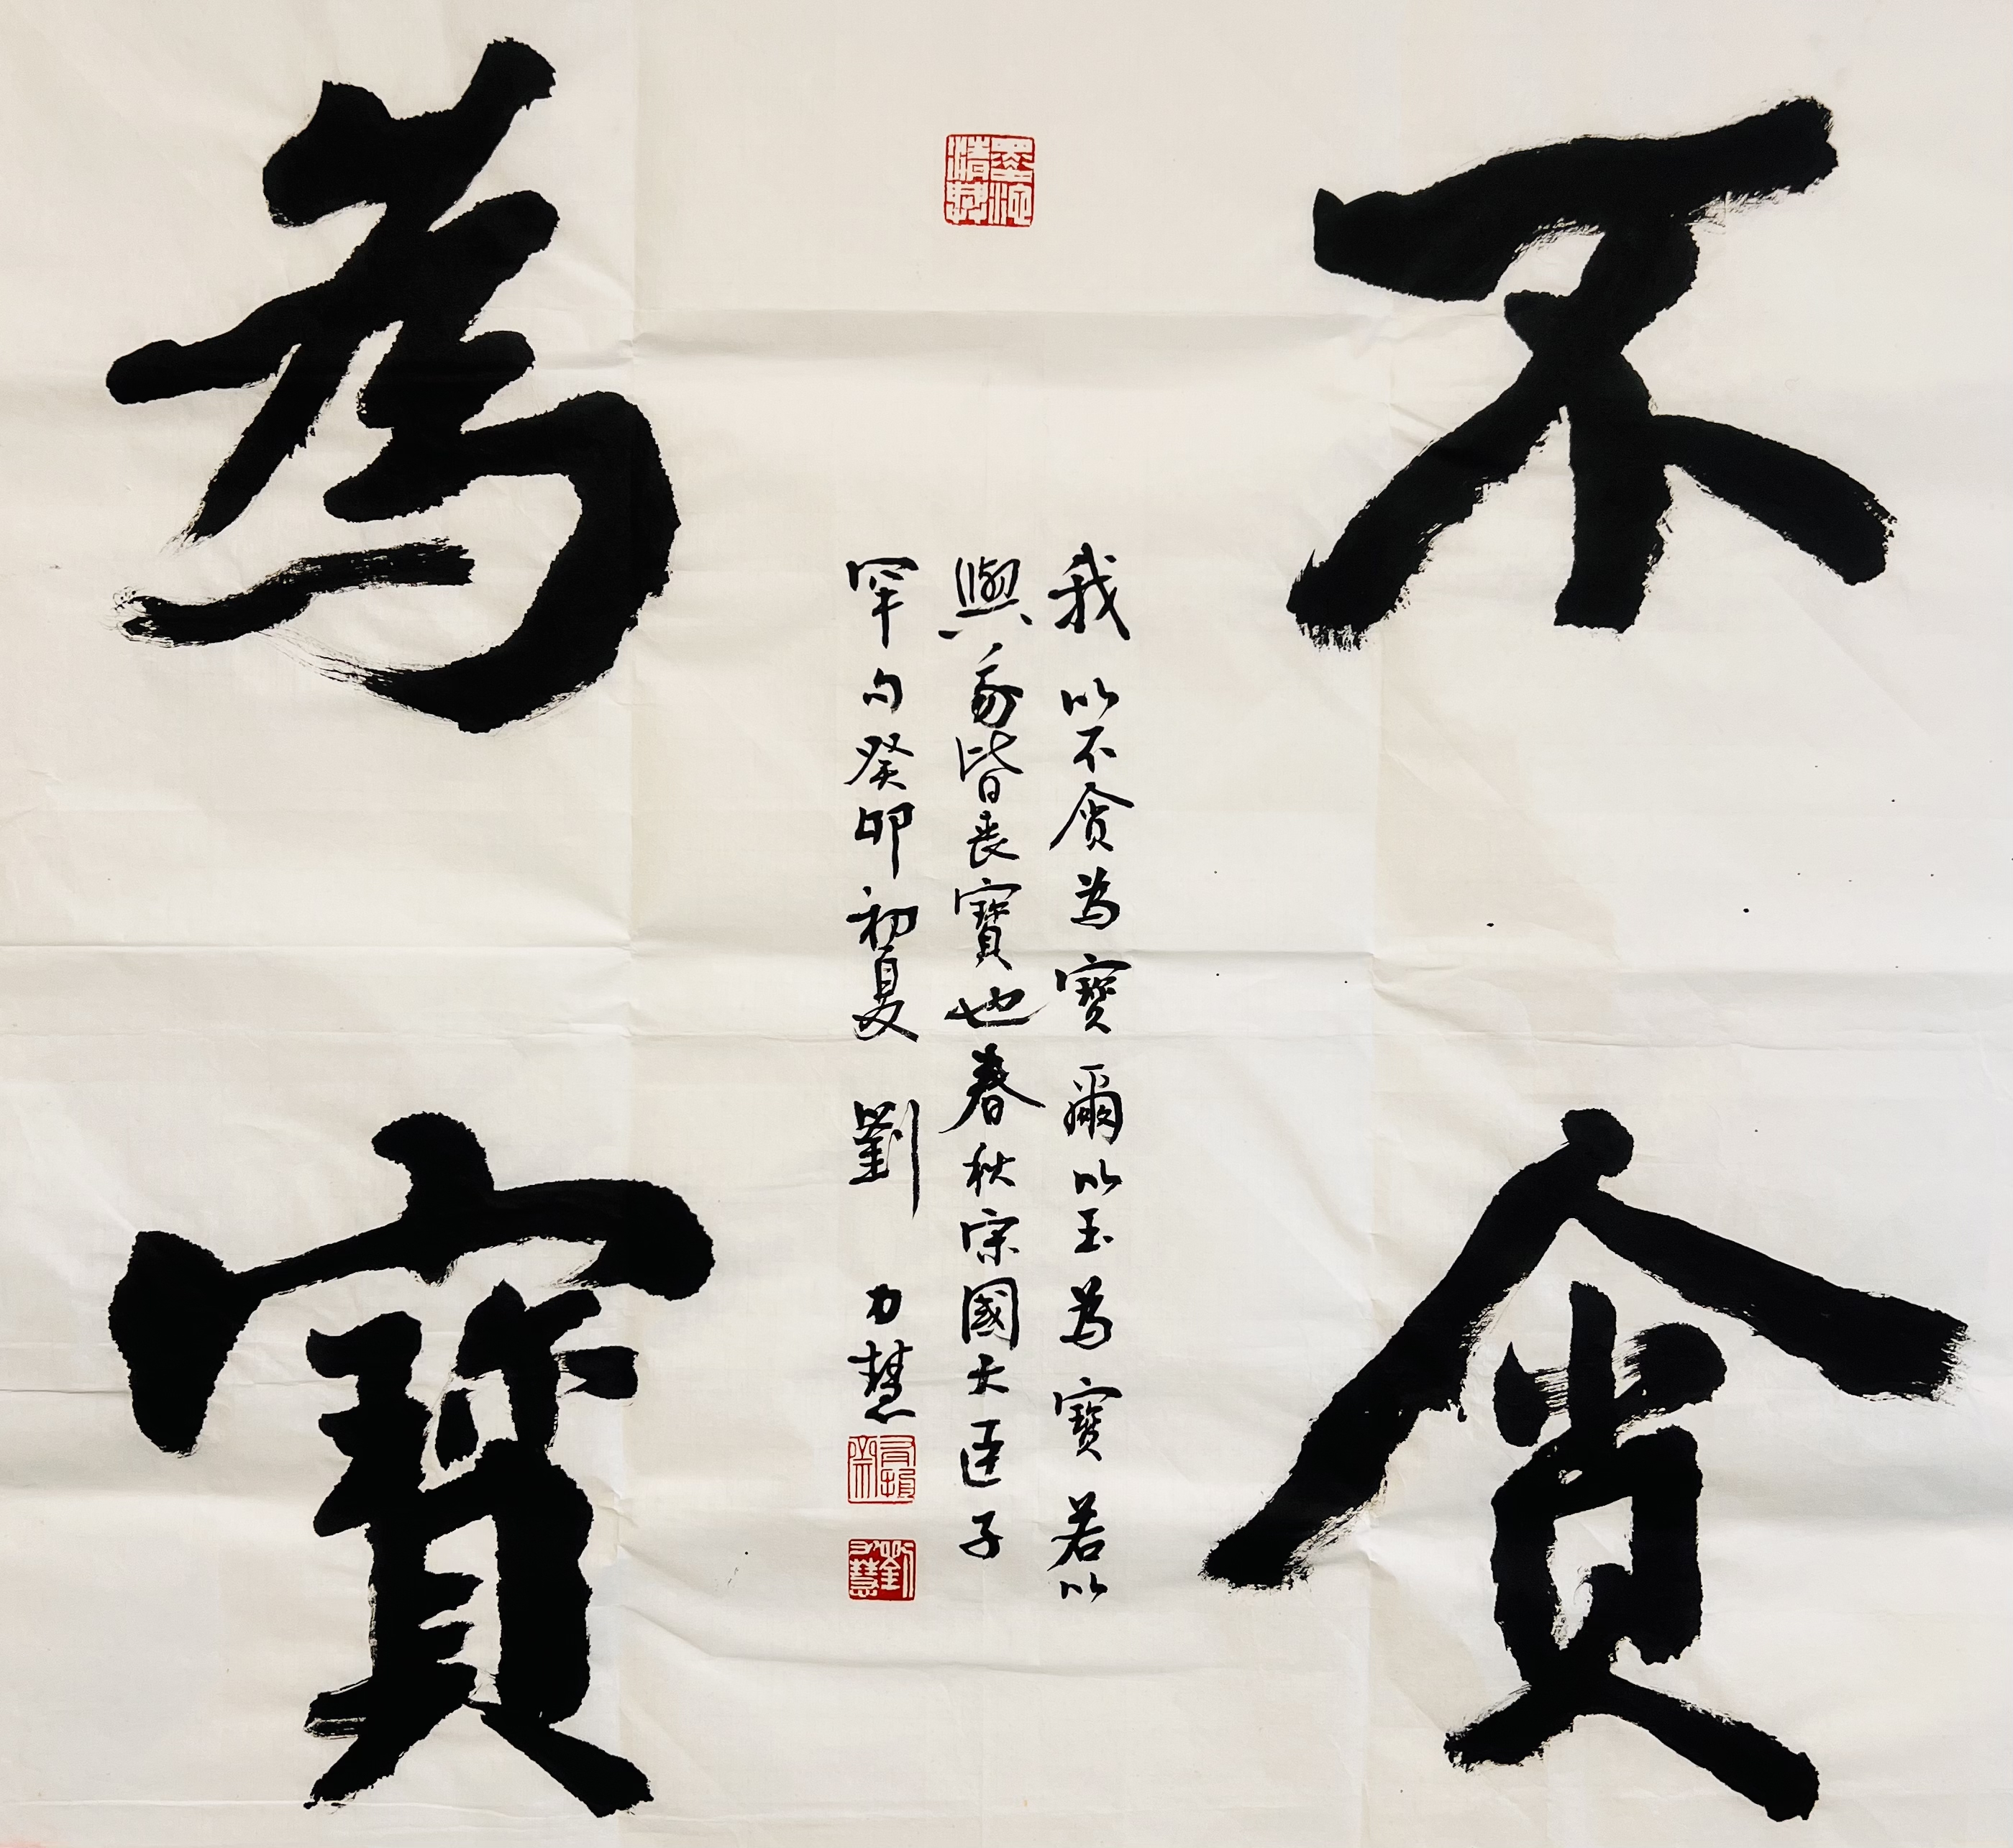 不貪
為寶
我以不貪為寶爾以玉為寶若以
與我皆喪寶也春秋宋國大臣子
罕句癸卯初夏 劉力慧
墨池清興
劉力慧